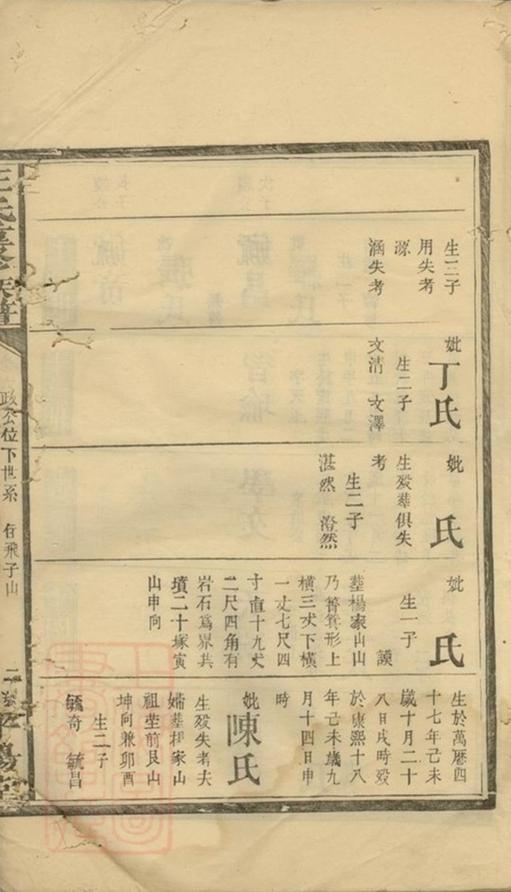 生三子
用失考
源
涵失考
妣
丁氏
生二子
文清 文澤
妣
氏
生歿葬俱失
考
生二子
湛然 澄然
妣
氏
生一子
謨
葬楊家山山
乃簪箕形上
橫三丈下橫
一丈七尺四
寸直十九丈
二尺四角有
岩石爲界共
墳二十塚寅
山申向
生於萬曆四
十七年己未
歲十月二十
八日戌時歿
於康熙十八
年己未歲九
月十四日申
時
妣
陳氏
生歿失考夫
婦葬楊家山
祖塋前艮山
坤向兼卯酉
生二子
毓奇 毓昌
氏
族譜
政公位下世系